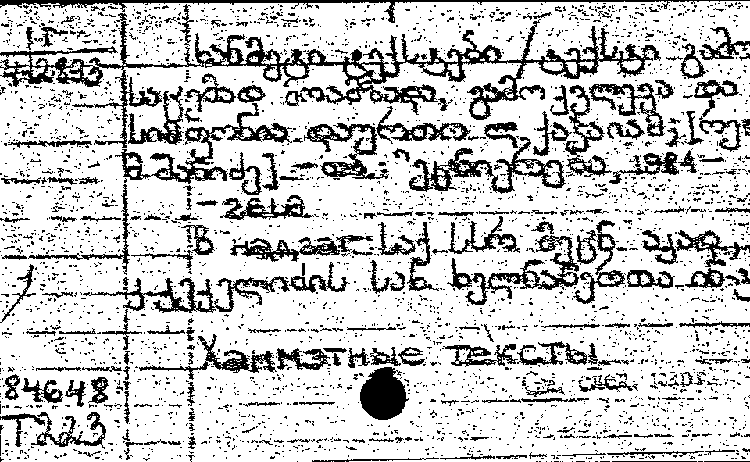 1Г
4-2893
ხანმეტი ტექსტები / ტექსტი გამო
საცემად მოამზადა, გამოკვლევა და
სიმფონია დაურთო ლ. ქაჯაიამ; [რედ
მ. შანიძე]. — თბ.: მეცნიერება, 1984 —
В надзаг.: საქ. სსრ მეცნ. აკად.,
კ. კეკელიძის სახ. ხელნაწერთა ინ-ტ
Ханмэтные тексты
См. след. карт.
84648
Т223